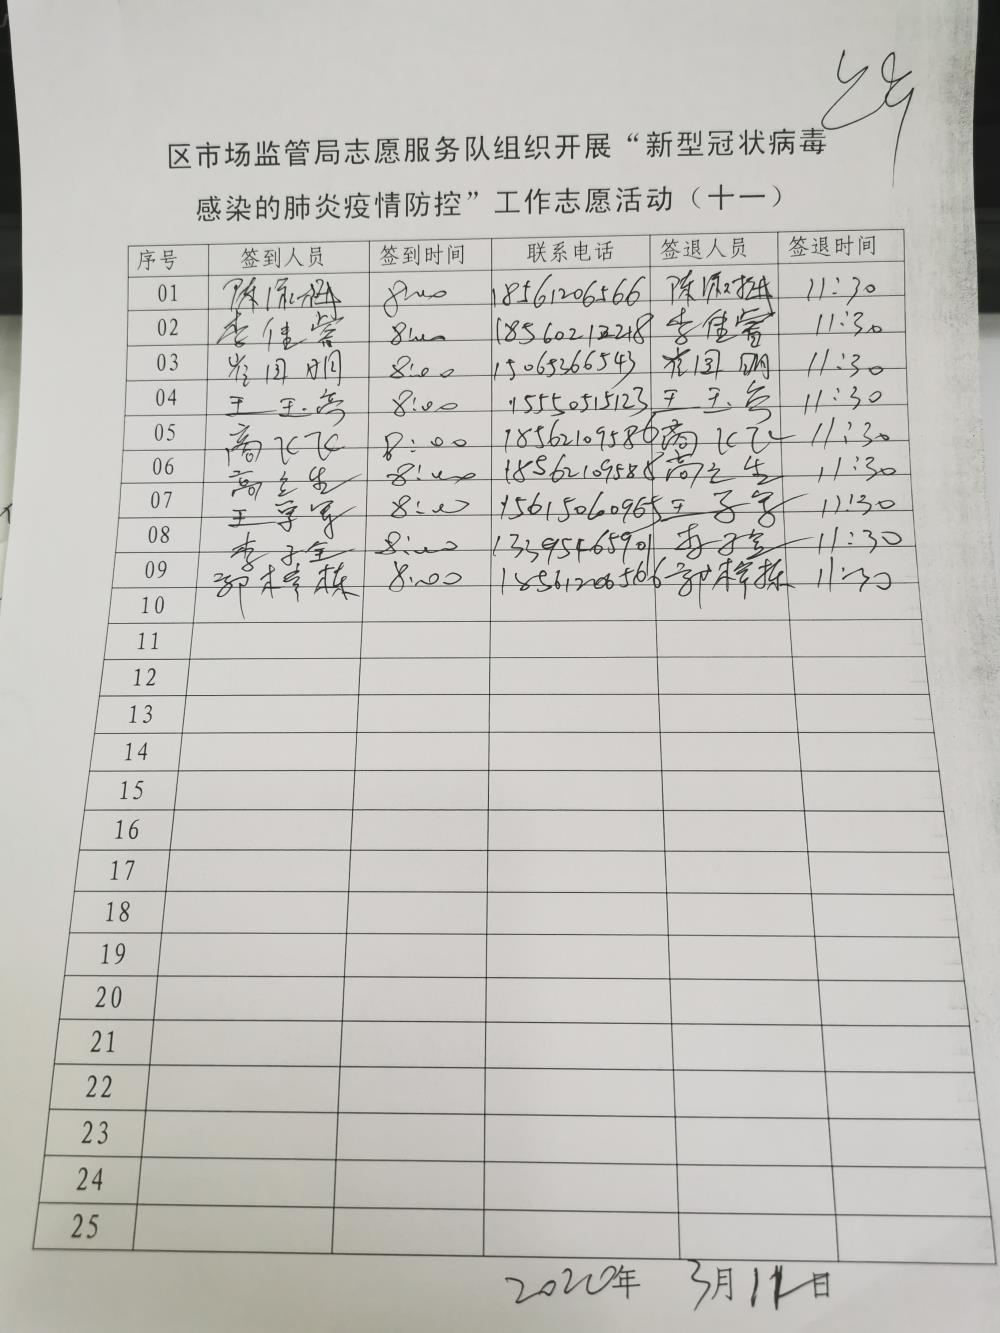 区市场监管局志愿服务队组织开展“新型冠状病毒
感染的肺炎疫情防控”工作志愿活动（十一）
序号 签到人员 签到时间 联系电话 签退人员 签退时间
01 8:00 18561206566 11:30
02 李佳莹 8:00 李佳莹 11:30
03 崔国明 8:00 15065366543 崔国明 11:30
04 8:00 15550515123 11:30
05 高飞飞 8:00 18562109586 高飞飞 11:30
06 高立生 8:00 18562109588 高立生 11:30
07 8:00 15615060965 王子宇 11:30
08 李子全 8:00 13395465901 李子全 11:30
09 郭梓栋 8:00 18561206566 郭梓栋 11:30
10
11
12
13
14
15
16
17
18
19
20
21
22
23
24
25
2020年 3月 日